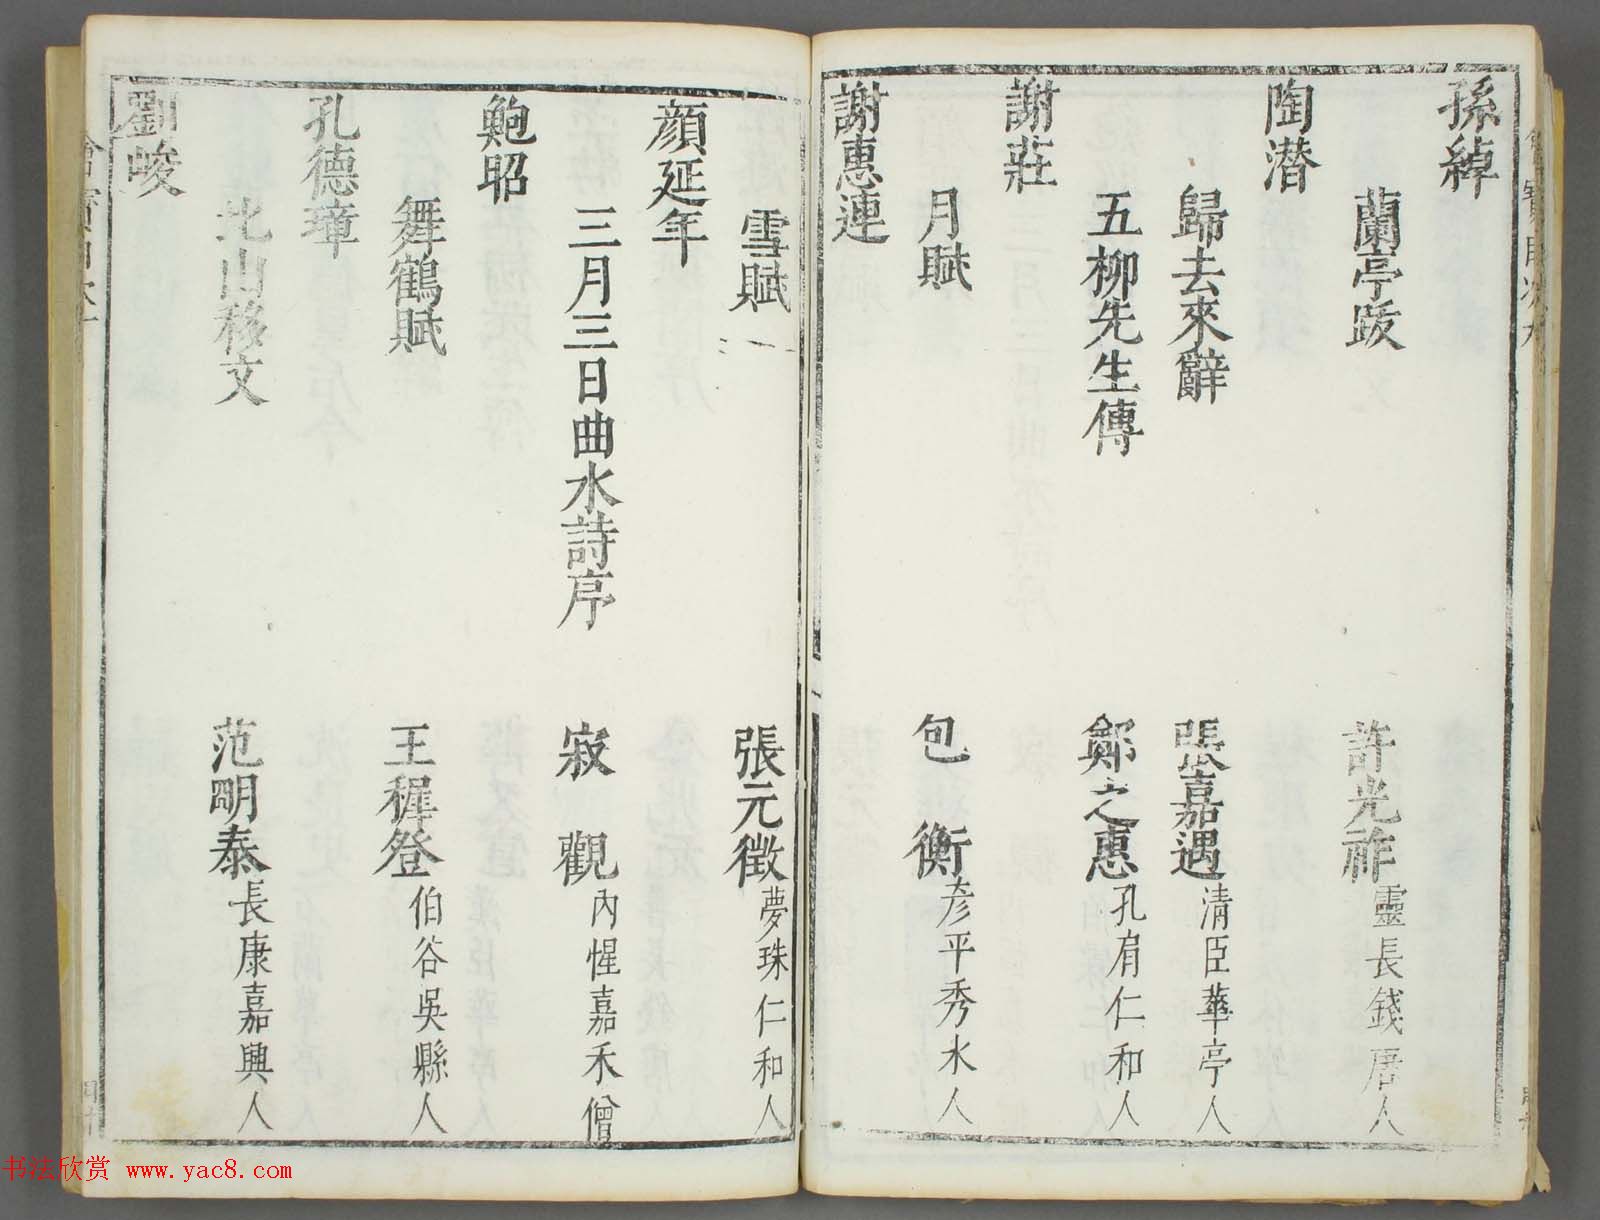 孫綽
蘭亭跋 許光祚 靈長錢唐人
陶潛
歸去來辭 張嘉遇 清臣華亭人
五柳先生傳 鄭之惠 孔肩仁和人
謝莊
月賦 包衡 彦平秀水人
謝惠連
雪賦 張元徵 夢珠仁和人
顔延年
三月三日曲水詩序 寂觀 內惺嘉禾僧
鮑昭
舞鶴賦 王穉登 伯谷吳縣人
孔德璋
北山移文 范明泰 長康嘉興人
劉峻
书法欣赏 www.yac8.com